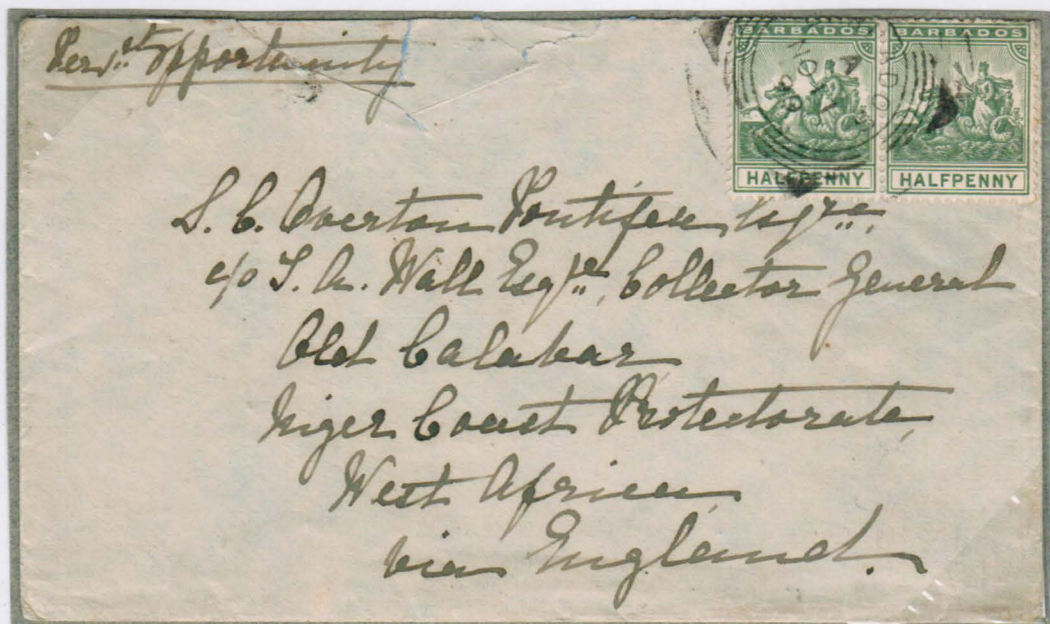 Per 1st Opportunity
BARBADOS BARBADOS
HALFPENNY HALFPENNY
S. C. Overton Pontifex Esqre.,
c/o T. A. Wall Esqre, Collector General
Old Calabar
Niger Coast Protectorate,
West Africa
via England.